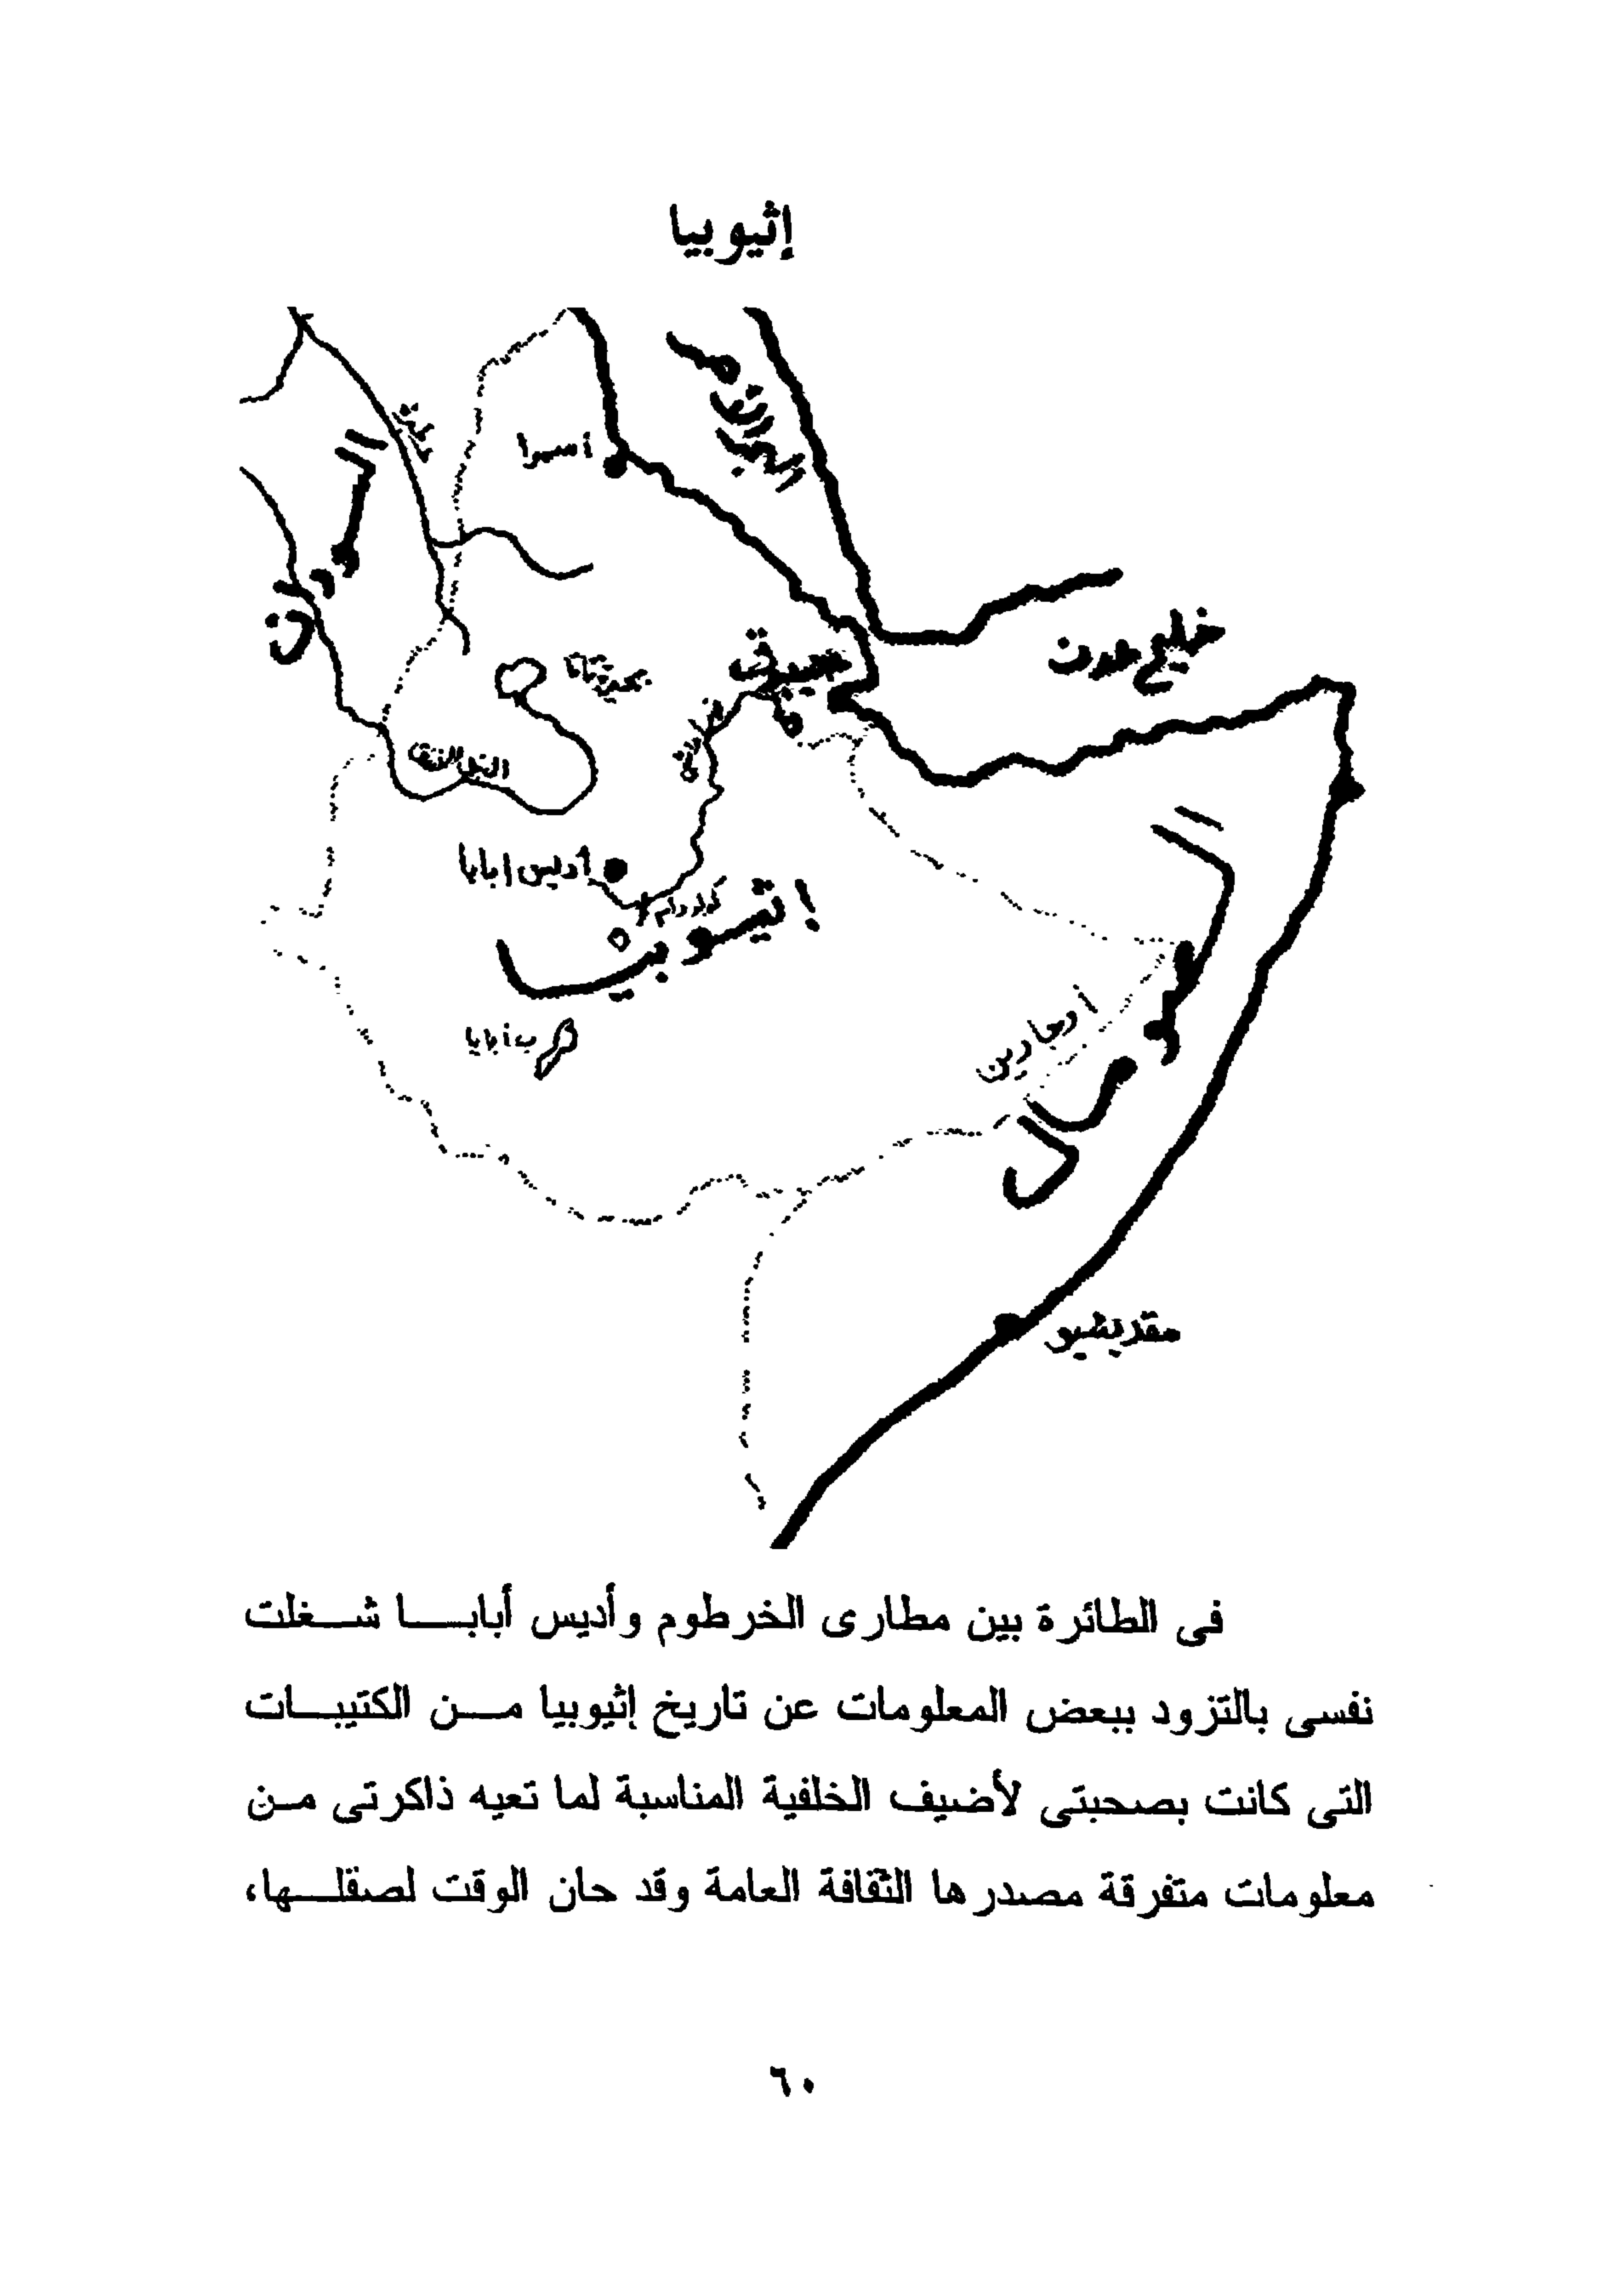 إثيوبيا
أسمرا
خليج عدن
جيبوتى
بحيرة تانا
النيل الأزرق
أديس أبابا
إثيوبيا
السودان
الصومال
مقديشيو
فى الطائرة بين مطارى الخرطوم وأديس أبابا شغلت
نفسى بالتزود ببعض المعلومات عن تاريخ إثيوبيا من الكتيبات
التى كانت بصحبتى لأضيف الخلفية المناسبة لما تعيه ذاكرتى من
معلومات متفرقة مصدرها الثقافة العامة وقد حان الوقت لصقلها،
٦٠